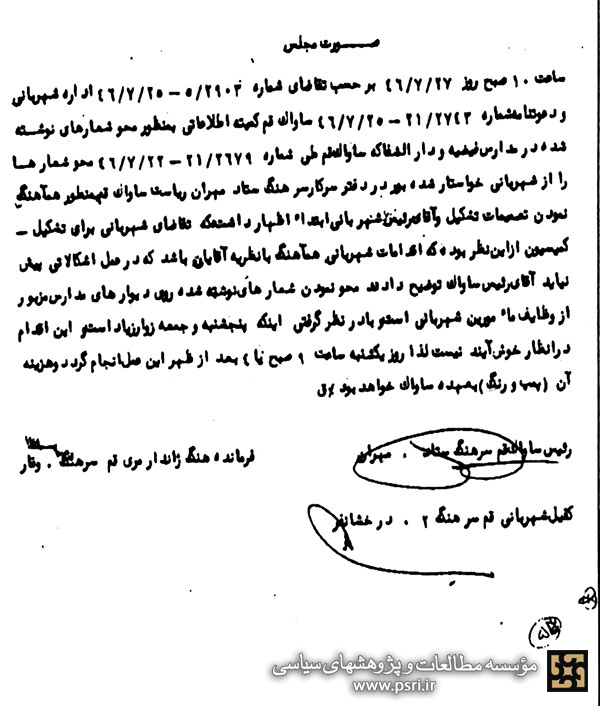 صورت مجلس
ساعت ۱۰ صبح روز ۴۶/۷/۲۷ بر حسب تقاضای شماره ۵/۲۹۰۳ – ۴۶/۷/۲۵ اداره شهربانی
و دعوتنامه‌شماره ۲۱/۲۷۴۳ – ۴۶/۷/۲۵ ساواک قم کمیته اطلاعاتی بمنظور محو شعارهای نوشته
شده در مدارس فیضیه و دارالشفا که ساواک‌قم طی شماره ۲۱/۲۶۷۹ – ۴۶/۷/۲۲ محو شعار ها
را از شهربانی خواستار شده بود در دفتر سرکار سرهنگ ستاد مهران ریاست ساواک قم‌بمنظور هم‌آهنگ
نمودن تصمیمات تشکیل و آقای رئیس شهربانی ابتداء اظهار داشتند که تقاضای شهربانی برای تشکیل –
کمیسیون از این نظر بوده که اقدامات شهربانی هم‌آهنگ با نظریه آقایان باشد که در عمل اشکالاتی پیش
نیاید آقای رئیس ساواک توضیح دادند محو نمودن شعار های نوشته شده روی دیوار های مدارس مزبور
از وظایف مامورین شهربانی است و با در نظر گرفتن اینکه پنجشنبه و جمعه زوار زیاد است و این اقدام
در انظار خوش‌آیند نیست لذا روز یکشنبه ساعت ۹ صبح یا ۴ بعد از ظهر این عمل انجام گردد و هزینه
آن (پمپ و رنگ) بعهده ساواک خواهد بود
رئیس ساواک‌قم سرهنگ ستاد . مهران
فرمانده هنگ ژاندارمری قم سرهنگ . وقار
کفیل شهربانی قم سرهنگ ۲ . درخشانفر
مؤسسه مطالعات و پژوهشهای سیاسی
www.psri.ir